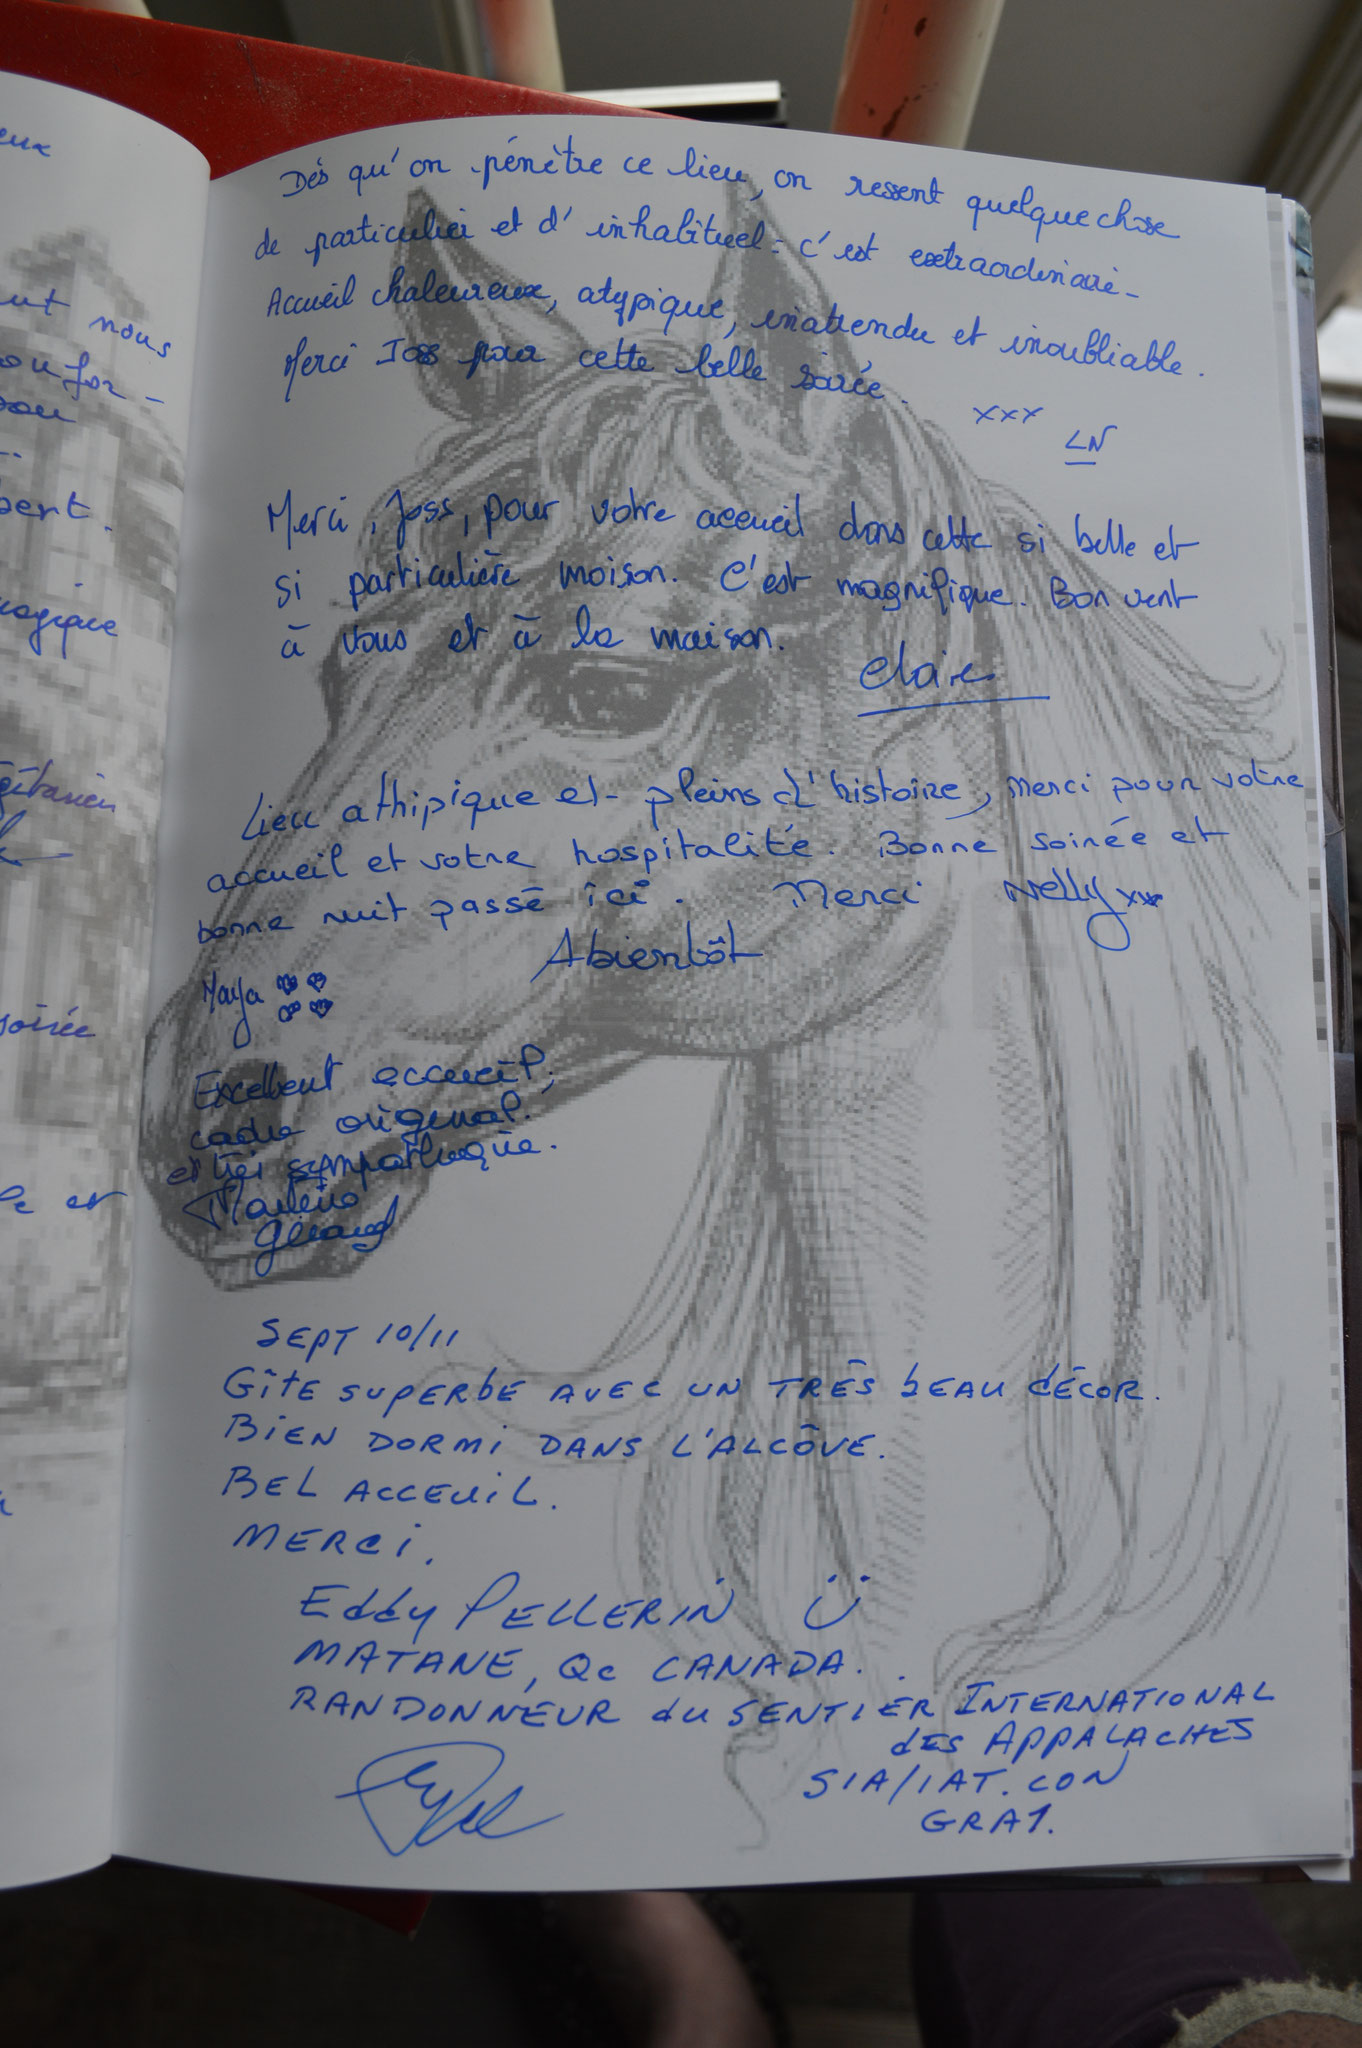 eux
nous
onfor-
bert.
magique
gétarien
soirée
et
Dès qu'on pénètre ce lieu, on ressent quelque chose
de particulier et d'inhabituel : c'est extraordinaire.
Accueil chaleureux, atypique, inattendu et inoubliable.
Merci Joss pour cette belle soirée.
xxx
LN
Merci, Joss, pour votre accueil dans cette si belle et
si particulière maison. C'est magnifique. Bon vent
à vous et à la maison.
Claire
Lieu athipique et pleins d'histoire, merci pour votre
accueil et votre hospitalité. Bonne soirée et
bonne nuit passé ici. Merci Nelly xxx
Abientôt
Maya
Excellent accueil,
cadre original.
et très sympathique.
Marlène
SEPT 10/11
Gîte superbe avec un très beau décor.
Bien dormi dans l'alcôve.
Bel acceuil.
Merci.
Eddy PELLERIN
MATANE, Qc CANADA.
RANDONNEUR du SENTIER INTERNATIONAL
des APPALACHES
SIA/IAT.CON
GRA1.